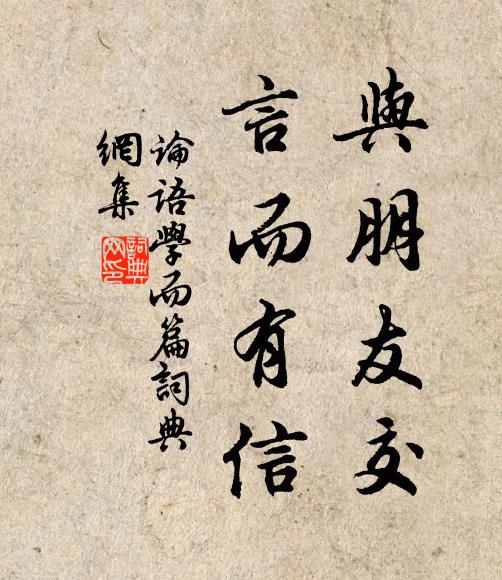 與朋友交
言而有信
論語學而篇詞典
網集
詞典
網印